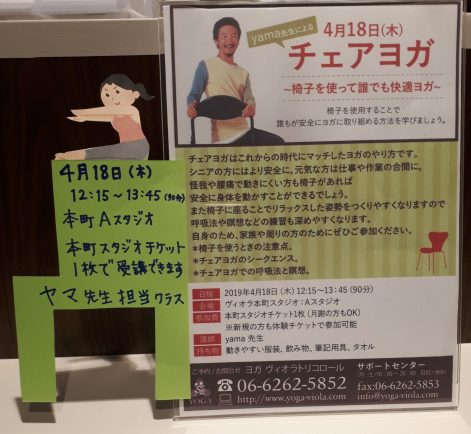 4月18日(木)
12:15~13:45(90分)
本町Aスタジオ
本町スタジオチケット
1枚で受講できます
ヤマ先生担当クラス
yama先生による
4月18日(木)
チェアヨガ
~椅子を使って誰でも快適ヨガ~
椅子を使用することで
誰もが安全にヨガに取り組める方法を学びましょう。
チェアヨガはこれからの時代にマッチしたヨガのやり方です。
シニアの方にはより安全に。元気な方は仕事や作業の合間に。
怪我や腰痛で動きにくい方も椅子があれば
安全に身体を動かすことができるでしょう。
また椅子に座ることでリラックスした姿勢をつくりやすくなりますので
呼吸法や瞑想などの練習も深めやすくなります。
自身のため、家族や周りの方のためにぜひご参加ください。
*椅子を使うときの注意点。
*チェアヨガのシークエンス。
*チェアヨガでの呼吸法と瞑想。
日程 2019年4月18日(木) 12:15~13:45 (90分)
会場 ヴィオラ本町スタジオ:Aスタジオ
参加費 本町スタジオチケット1枚 (月謝の方もOK)
※新規の方も体験チケットで参加可能
講師 yama 先生
持ち物 動きやすい服装、飲み物、筆記用具、タオル
ご予約/お問合せ ヨガ ヴィオラトリコロール
YOGA
06-6262-5852
http://www.yoga-viola.com
サポートセンター
fax:06-6262-5853
info@yoga-viola.com